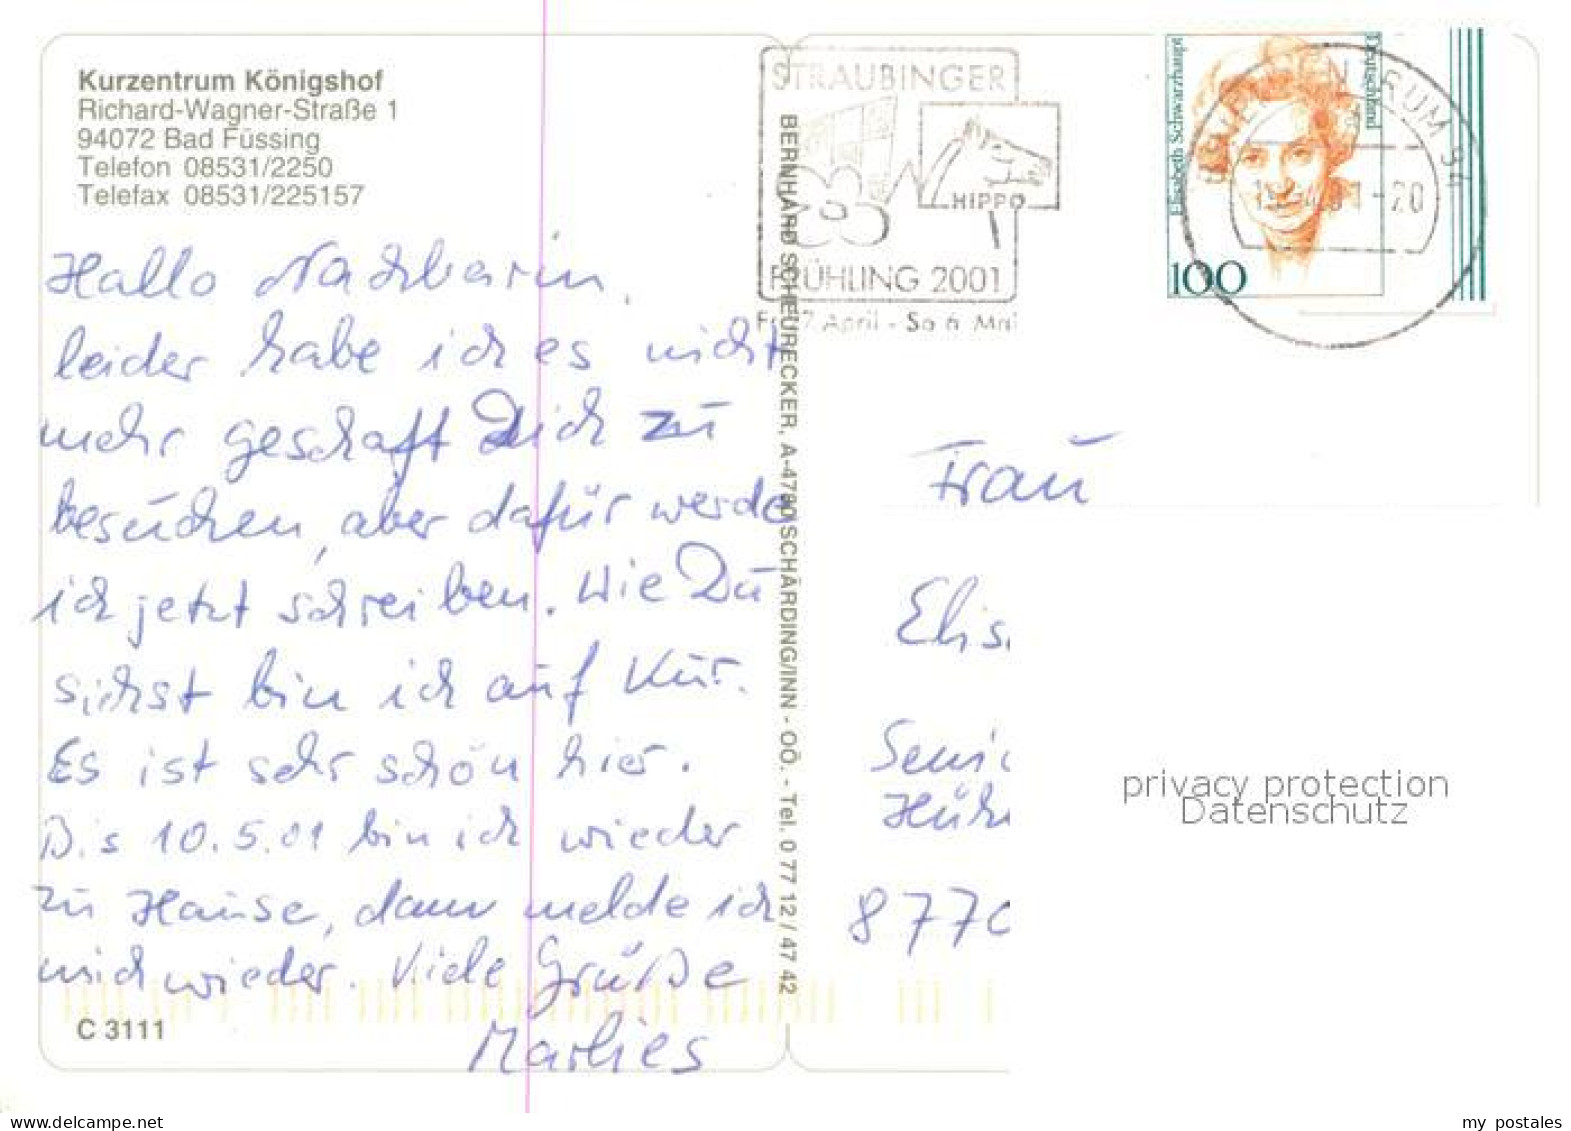 Kurzentrum Königshof
Richard-Wagner-Straße 1
94072 Bad Füssing
Telefon 08531/2250
Telefax 08531/225157
Hallo Nachbarin,
leider habe ich es nicht
mehr geschafft Dich zu
besuchen, aber dafür werde
ich jetzt schreiben. Wie Du
sichst bin ich auf Kur.
Es ist sehr schön hier.
Bis 10.5.01 bin ich wieder
zu Hause, dann melde ich
mich wieder. Viele Grüße
Marlies
C 3111
BERNHARD SCHEURECKER, A-4780 SCHÄRDING/INN - OÖ. - Tel. 0 77 12 / 47 42
STRAUBINGER
HIPPO
FRÜHLING 2001
Fr 27 April - So 6 Mai
Elisabeth Schwarzhaupt
Deutschland
100
BRIEFZENTRUM 94
-20
Frau
Elis
Seni
Hüh
8770
privacy protection
Datenschutz
my postales